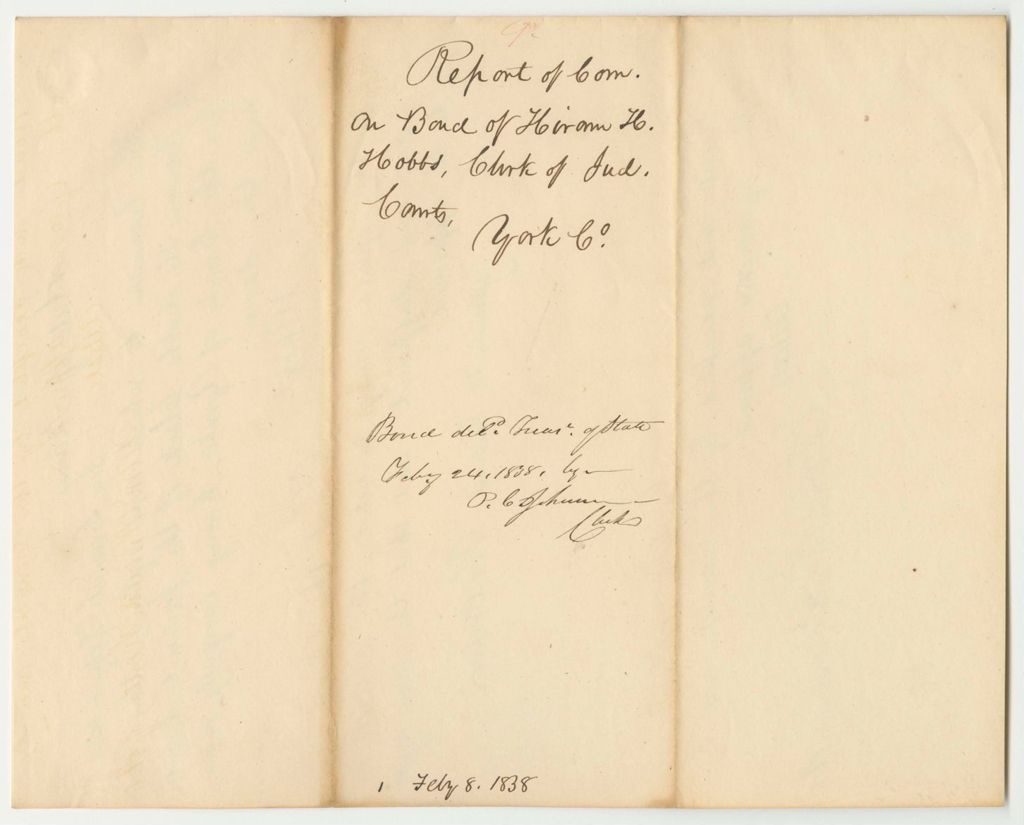 Report of Com.
on Bond of Hiram H.
Hobbs, Clerk of Jud.
Courts,
York Co.
Bond del'd. Treasr. of State
Feby 24, 1838, by
P. C. Johnson
Clerk
1 Feby 8. 1838